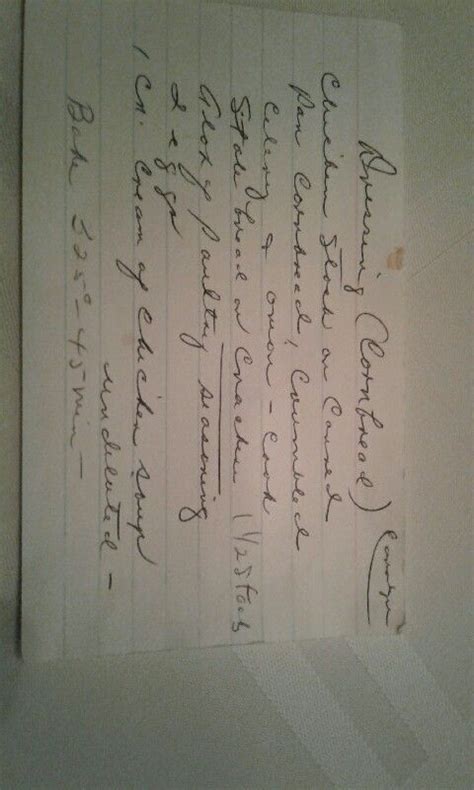 Dressing (Cornbread)
Chicken Stock or Canned
Pan Cornbread, Crumbled
Celery & onion - Cook
Stale bread or Cracker (1 1/2 Stack
A lot of Poultry seasoning
2 eggs
1 Cn. Cream of Chicken soup
undiluted -
Bake 325° - 45 min -